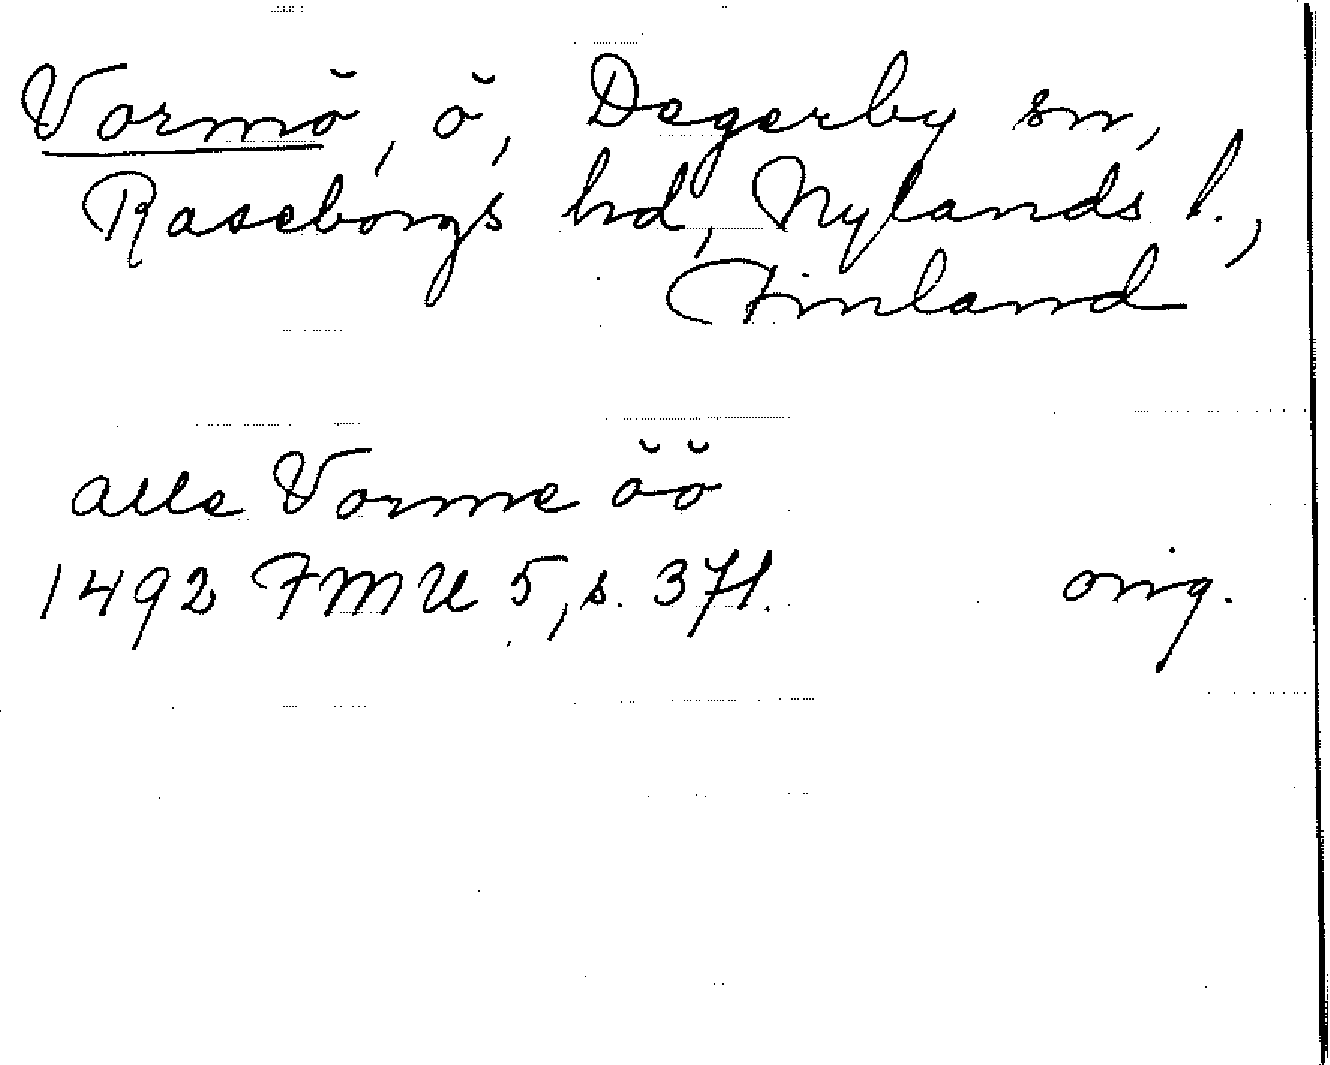 Vormö, ö, Degerby sn,
Raseborgs hd, Nylands l.,
Finland
alle Vorme öö
1492 FMU 5, s. 371. orig.